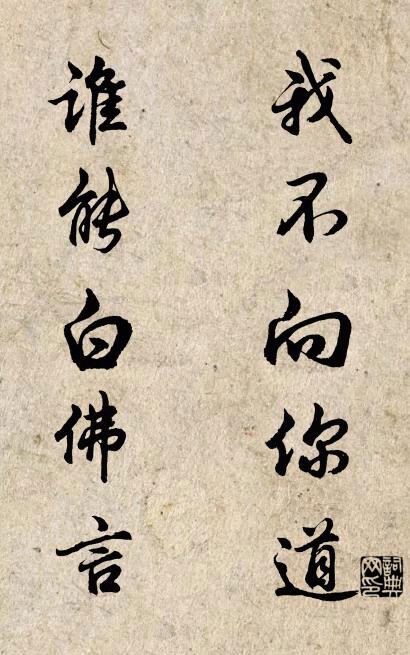 我不向你道
谁能白佛言
詞典網印